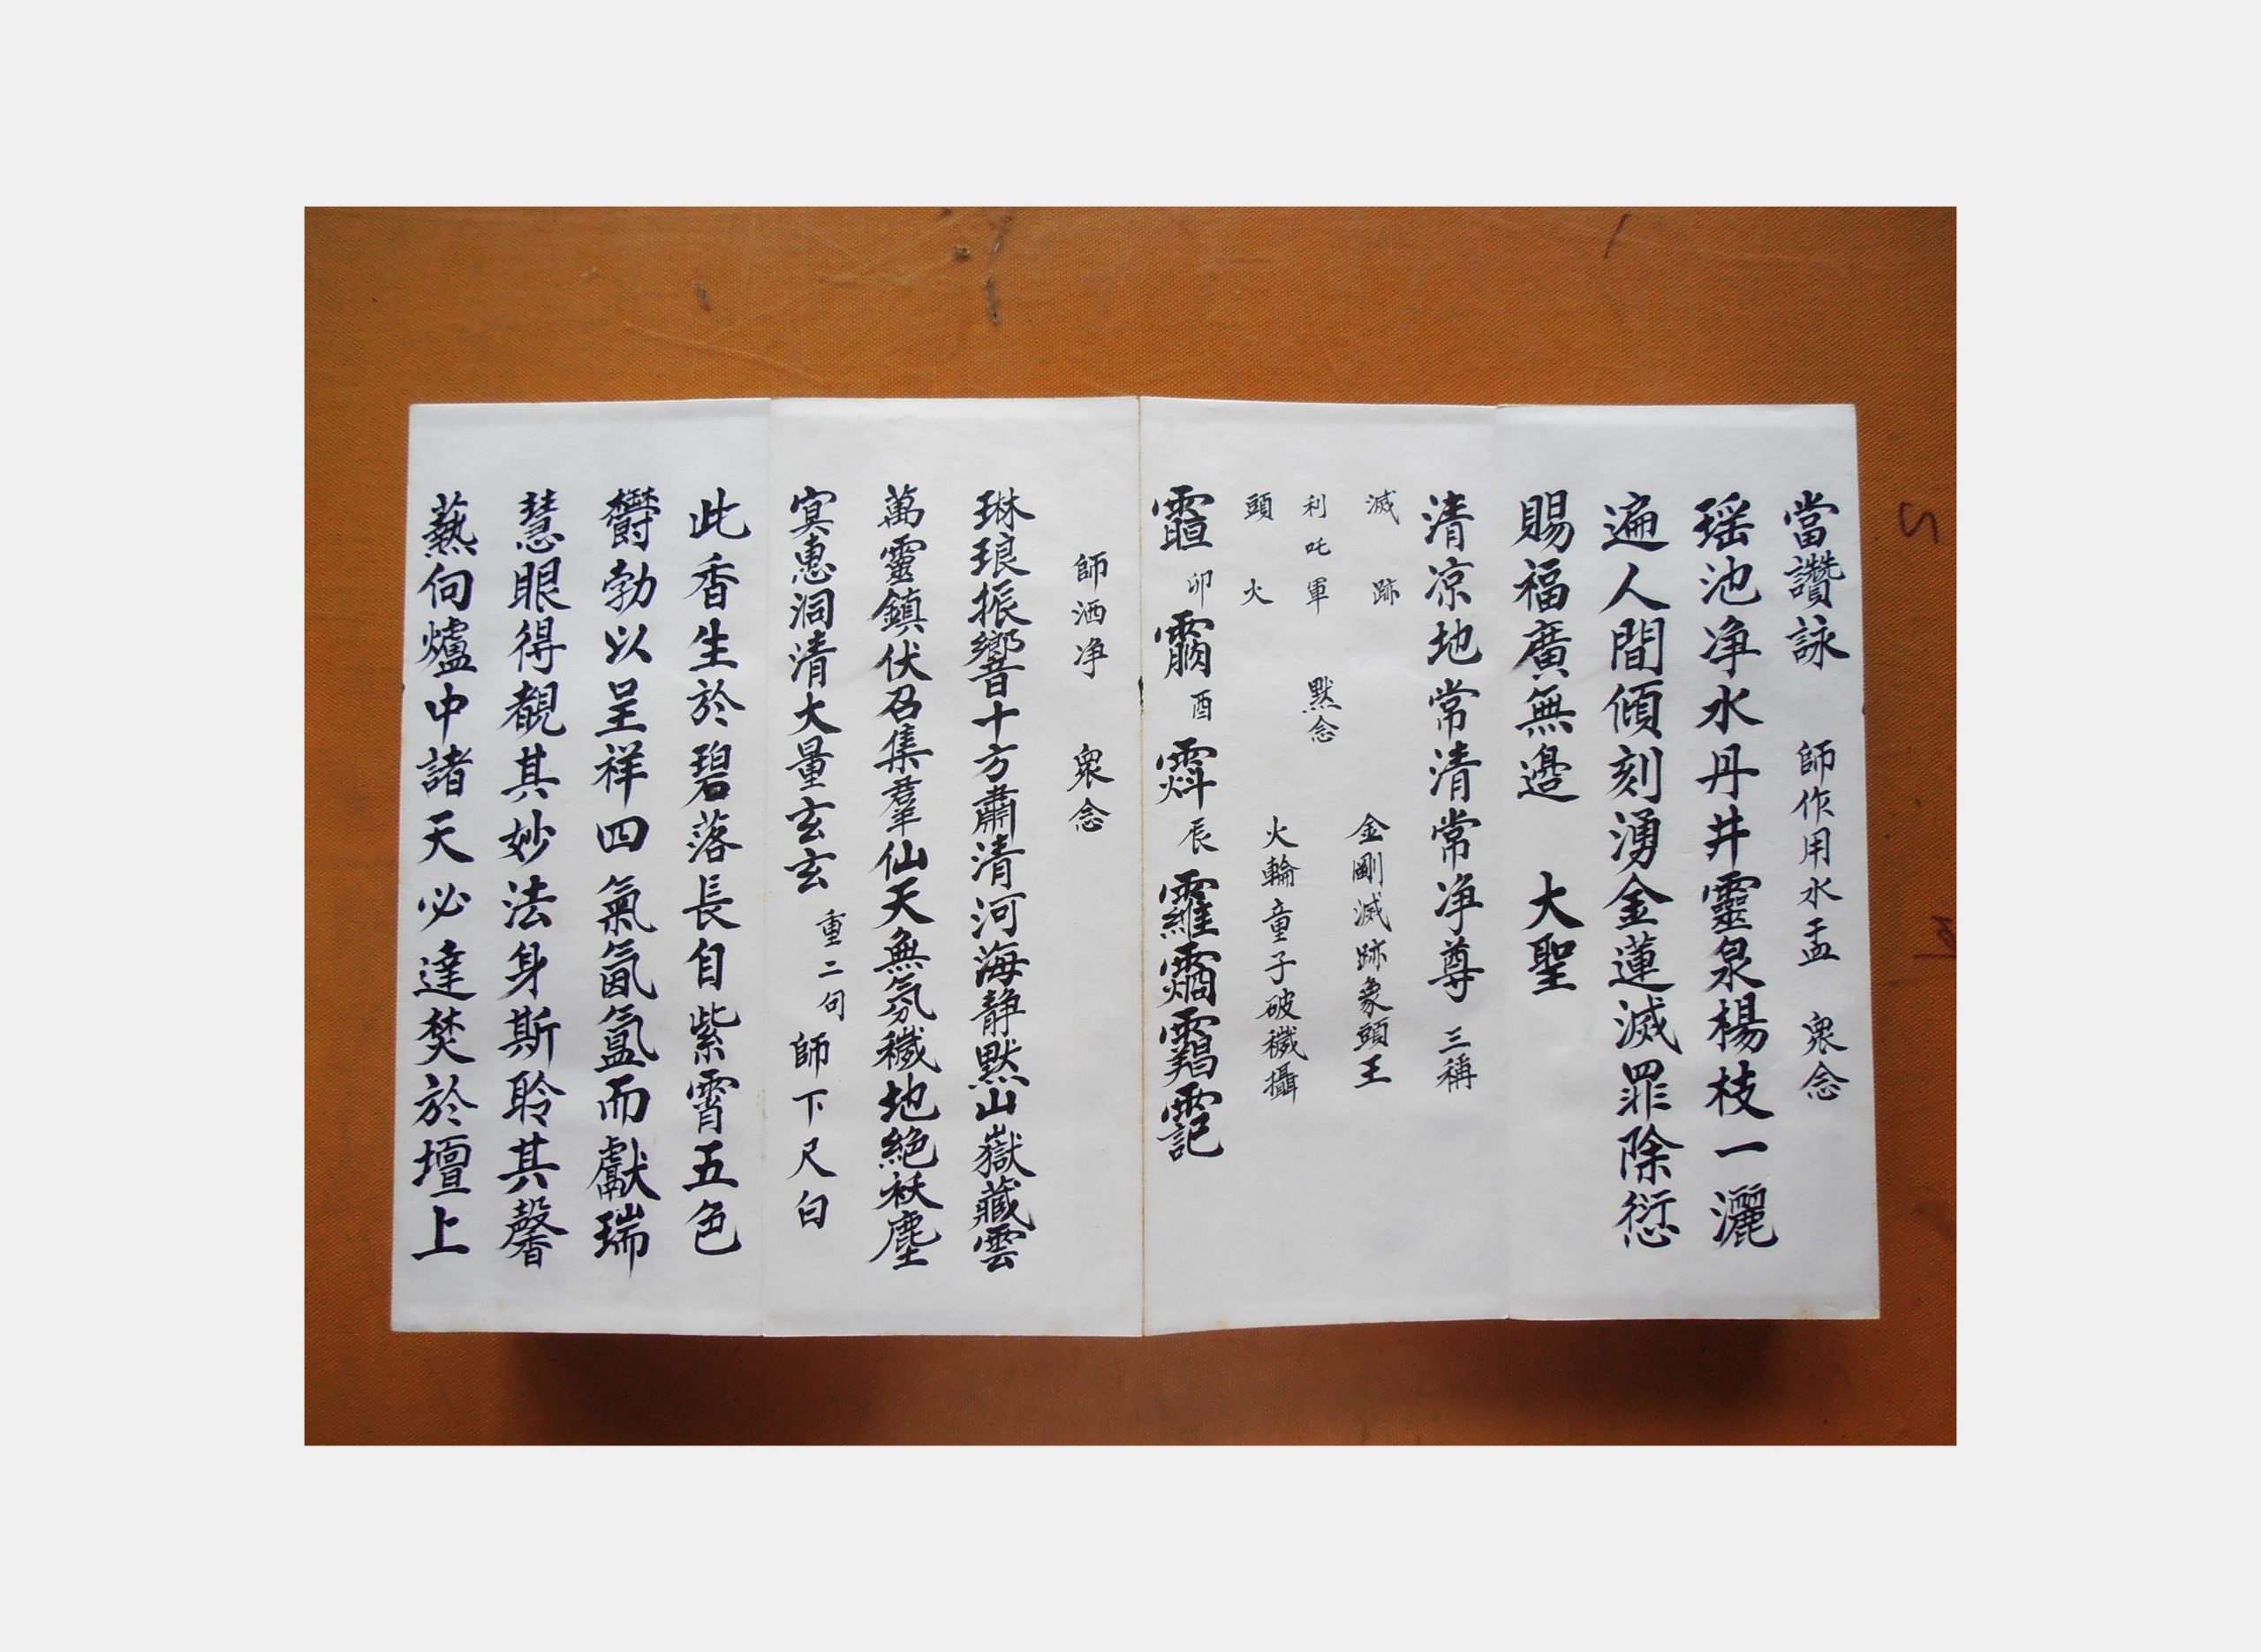 當讚詠 師作用水盂 衆念
瑶池净水丹井靈泉楊枝一灑
遍人間傾刻湧金蓮滅罪除愆
賜福廣無邊 大聖
清凉地常清常净尊 三稱
滅跡 金剛滅跡象頭王
利吒軍 默念
頭火 火輪童子破穢攝
卯 酉 辰
師洒净 衆念
琳琅振響十方肅清河海静默山嶽藏雲
萬靈鎮伏召集羣仙天無氛穢地絶袄塵
冥惠洞清大量玄玄 重二句 師下尺白
此香生於碧落長自紫霄五色
欝勃以呈祥四氣氤氲而獻瑞
慧眼得覩其妙法身斯聆其馨
爇向爐中諸天必達焚於壇上